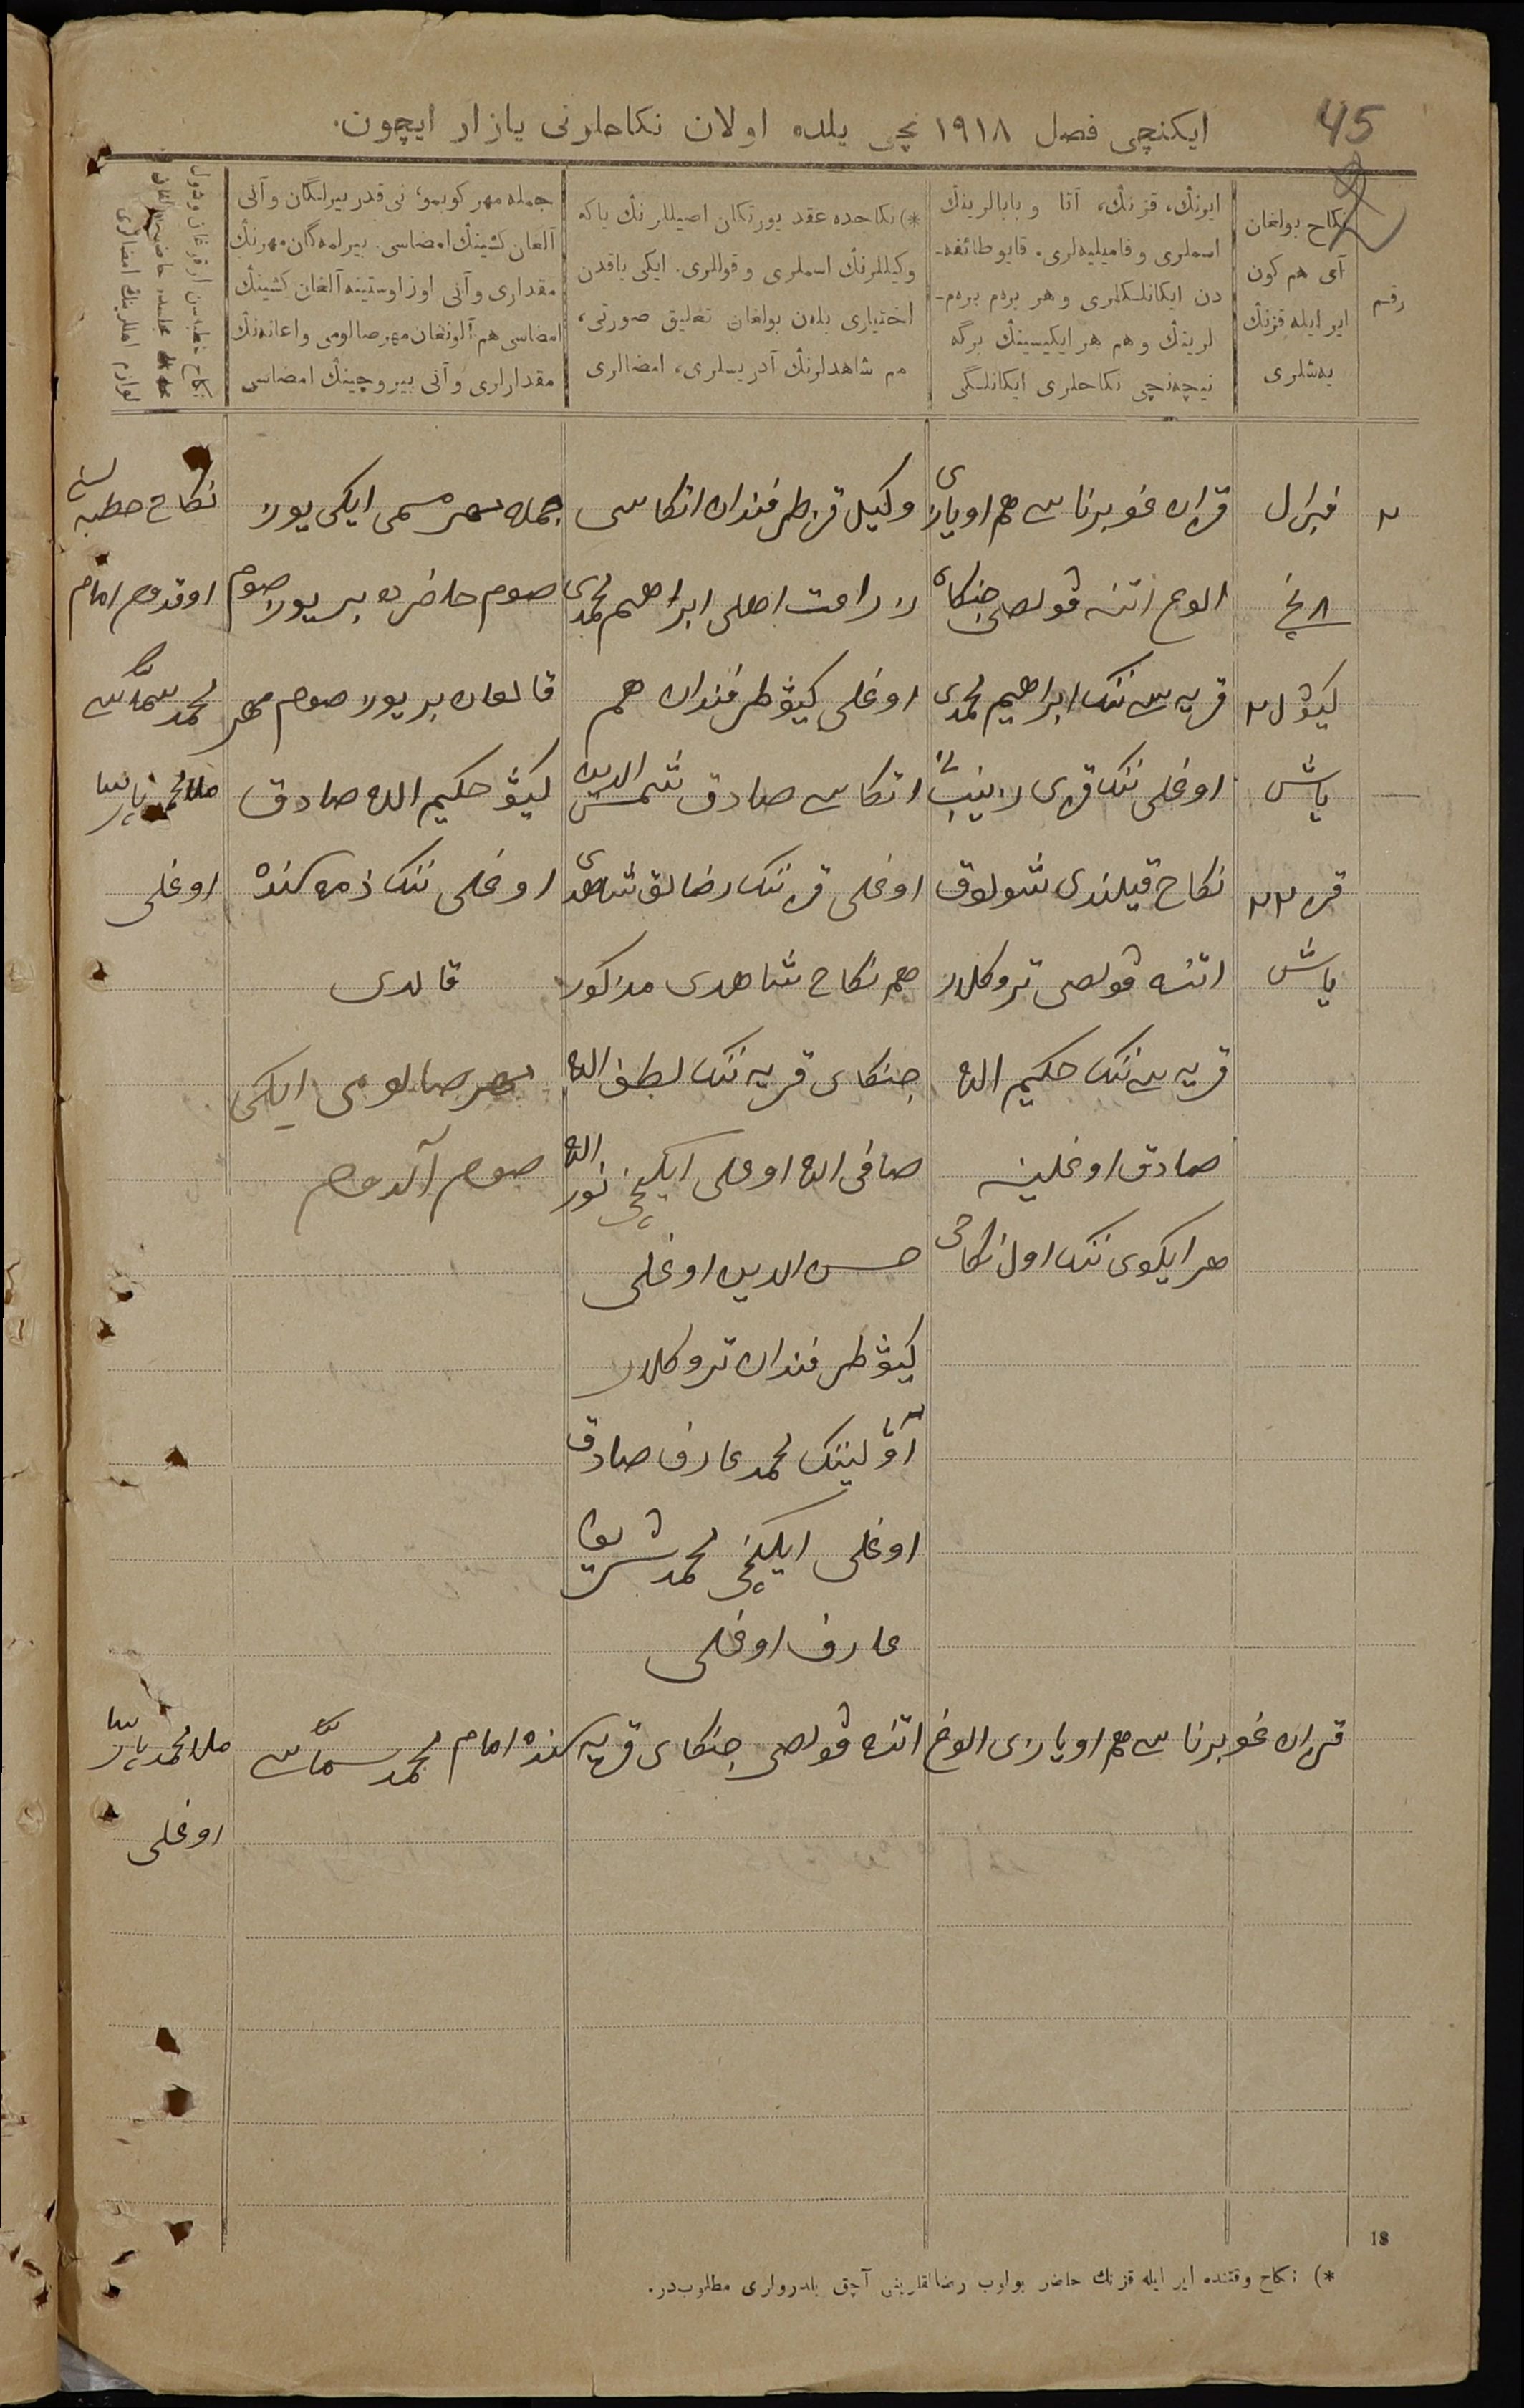 45
ایکنچی فصل ١٩١٨ نچی یلده اولان نکاحلرنی یازار ایچون.
رقم
نکاح بولغان
آی هم کون
ایر ایله قزنڭ
یەشلری
ایرنڭ، قزنڭ، آتا و بابالرینڭ
اسملری و فامیلیەلری. قایو طائفه-
دن ایکانلکلری و هر برەم برەم-
لرینڭ و هم هر ایکیسینڭ برگه
نیچەنچی نکاحلری ایکانلگی
*) نکاحده عقد یورتکان اصیللرنڭ یاکه
وکیللرنڭ اسملری و قوللری. ایکی یاقدن
اختیاری بلەن بولغان تعلیق صورتی،
هم شاهدلرنڭ آدریسلری، امضالری
جمله مهر کوبمو، نی قدر بیرلگان وآنی
آلغان کشینڭ امضاسی. بیرلمەگان مهرنڭ
مقداری وآنی اوز اوستینه آلغان کشینڭ
امضاسی هم آلونغان مهر صالومی واعانەنڭ
مقدارلری وآنی بیروچینڭ امضاسی
٢
فبرال
٨ نچی
کیۉ ٢
یاش
قز ٢٢
یاش
قزان غوبرناسی هم اویازی
الوغ اتنه ۉلصی جنکای
قریەسی ننک ابراهیم محمدی
اوغلی ننک قزی زینب
نکاح قیلندی شولوق
اتنه ۉلصی تروکلار
قریەسی ننک حکیم الله
صادق اوغلینه
هر ایکوی ننک اول نکاحی
وکیل قز طرفندان اتکاسی
زراعت اهلی ابراهیم محمدی
اوغلی کیۉ طرفندان هم
اتکاسی صادق شمس الدین
اوغلی قزننک رضالق شاهدی
هم نکاح شاهدی مذکور
جنکای قریەننک لطف الله
صافی الله اوغلی ایکنچی نور الله
حسن الدین اوغلی
کیۉ طرفندان تروکلار
آۉلیننک محمد عارف صادق
اوغلی ایکنچی محمد شریف
عارف اوغلی
جمله مهر مسمی ایکی یوز
صوم حاضرده بر یوز صوم
قالغان بر یوز صوم مهر
کیۉ حکیم الله صادق
اوغلی ننک ذمەسنده
قالدی
مهر صالومی ایکی
صوم آلدوم
نکاح خطبەسنی
اوقدوم امام
محمد
ملا محمدیار
اوغلی
قزان غوبرناسی هم اویازی الوغ اتنه ۉلصی جنکای قریەسنده امام محمد
ملا محمدیار
اوغلی
18
*) نکاح وقتنده ایر ایله قزنڭ حاضر بولوب رضالقلرینی آچق بلدرولری مطلوبدر.